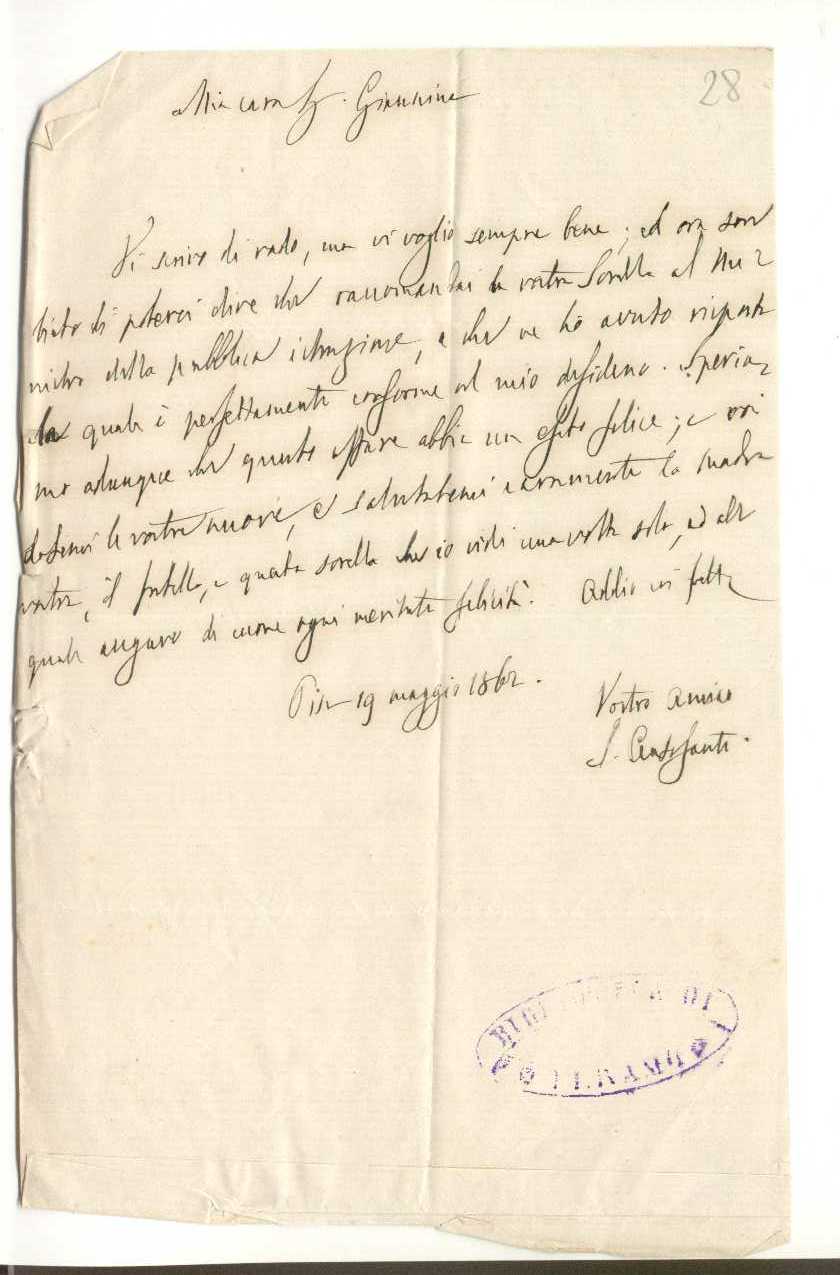 Mia cara Sig. Giannina
28
Vi scrivo di rado, ma vi voglio sempre bene; ed ora son
lieto di potervi dire che raccomandai la vostra Sorella al Mi-
nistro della pubblica istruzione, e che ne ho avuto risposta
la quale è perfettamente conforme al mio desiderio. Speria-
mo adunque che questo affare abbia un esito felice; e voi
datemi le vostre nuove, e salutatemi caramente la madre
vostra, il fratello, e questa sorella che io vidi una volta sola, ed alla
quale auguro di cuore ogni meritata felicità. Addio in fretta
Pisa 19 maggio 1862.
Vostro Amico
S. Centofanti.
BIBLIOTECA DI
TERAMO